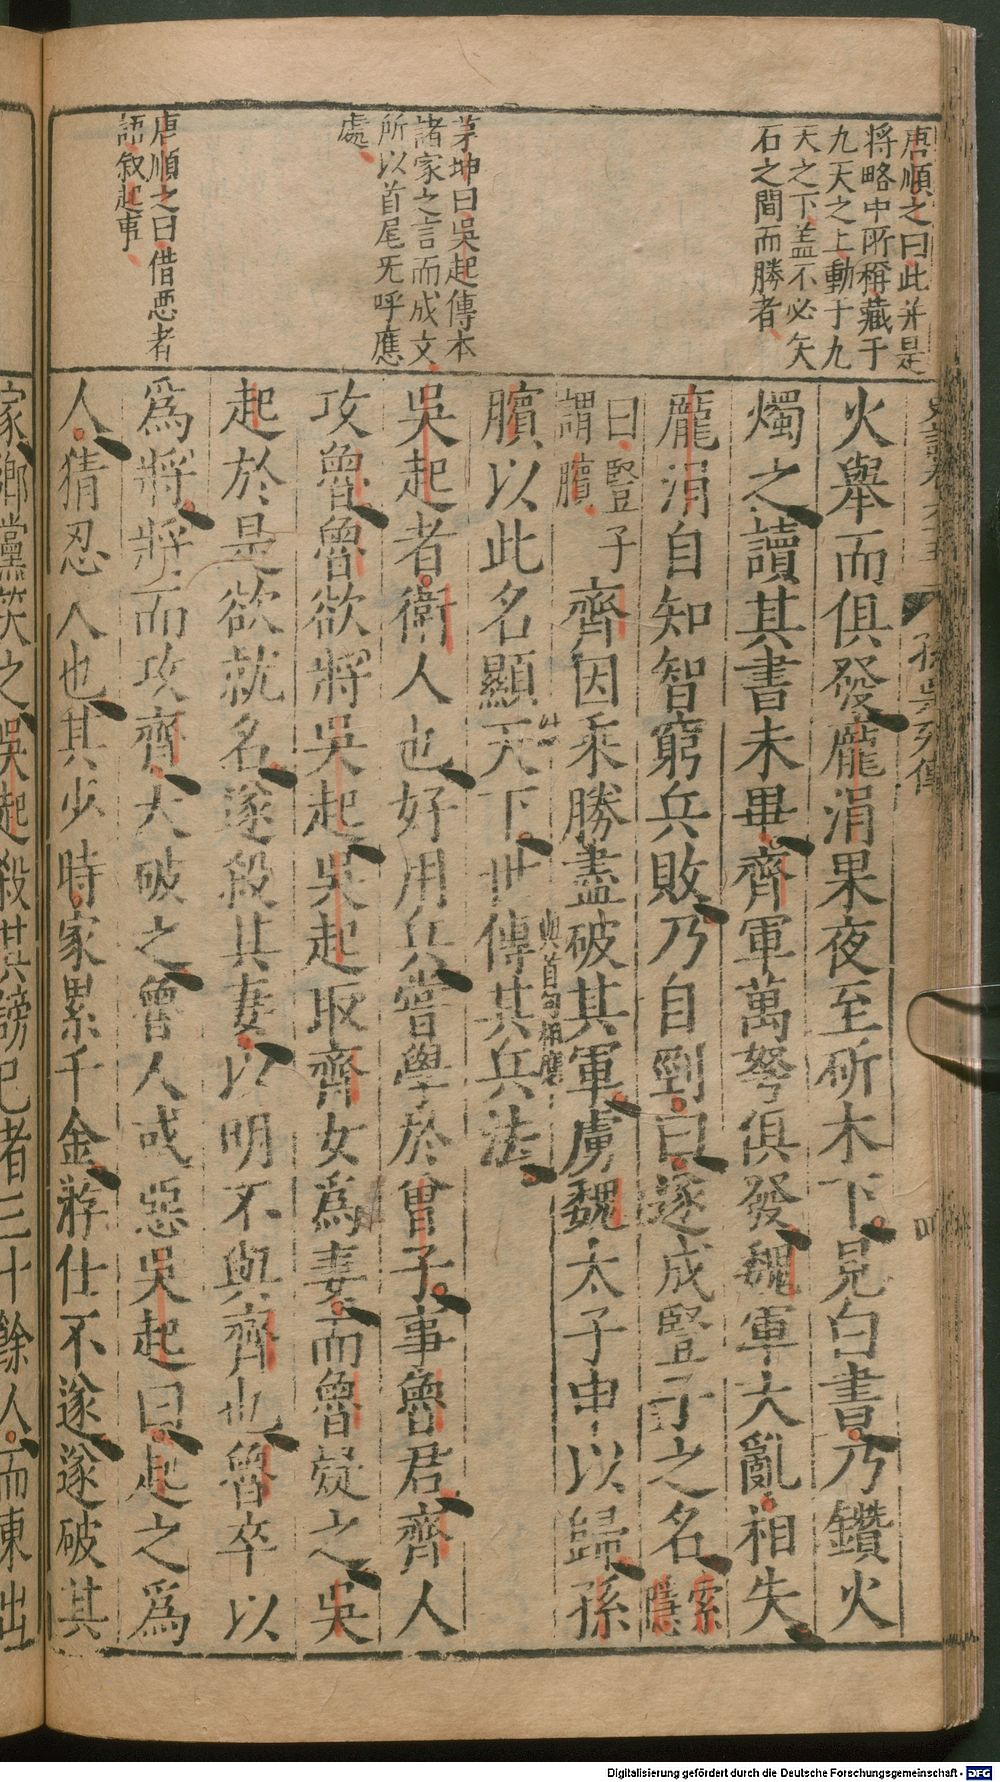 唐順之曰此并是
将略中所稱藏于
九天之上動于九
天之下盖不必矢
石之間而勝者
茅坤曰吳起傳本
諸家之言而成文
所以首尾旡呼應
處
唐順之曰借悪者
語叙起事
孫吳列傳
火舉而俱發龐涓果夜至斫木下見白書乃鑽火
燭之讀其書未畢齊軍萬弩俱發魏軍大亂相失
龐涓自知智窮兵敗乃自剄曰遂成豎子之名索
隱
曰豎子
謂臏
齊因乘勝盡破其軍虜魏太子申以歸孫
與首句相應
臏以此名顯天下世傳其兵法
吳起者衛人也好用兵嘗學於曾子事魯君齊人
攻魯魯欲將吳起吳起取齊女爲妻而魯疑之吳
起於是欲就名遂殺其妻以明不與齊也魯卒以
爲將將而攻齊大破之魯人或惡吳起曰起之爲
人猜忍人也其少時家累千金游仕不遂遂破其
家鄉黨笑之吳起殺其謗己者三十餘人而東出
Digitalisierung gefördert durch die Deutsche Forschungsgemeinschaft - DFG